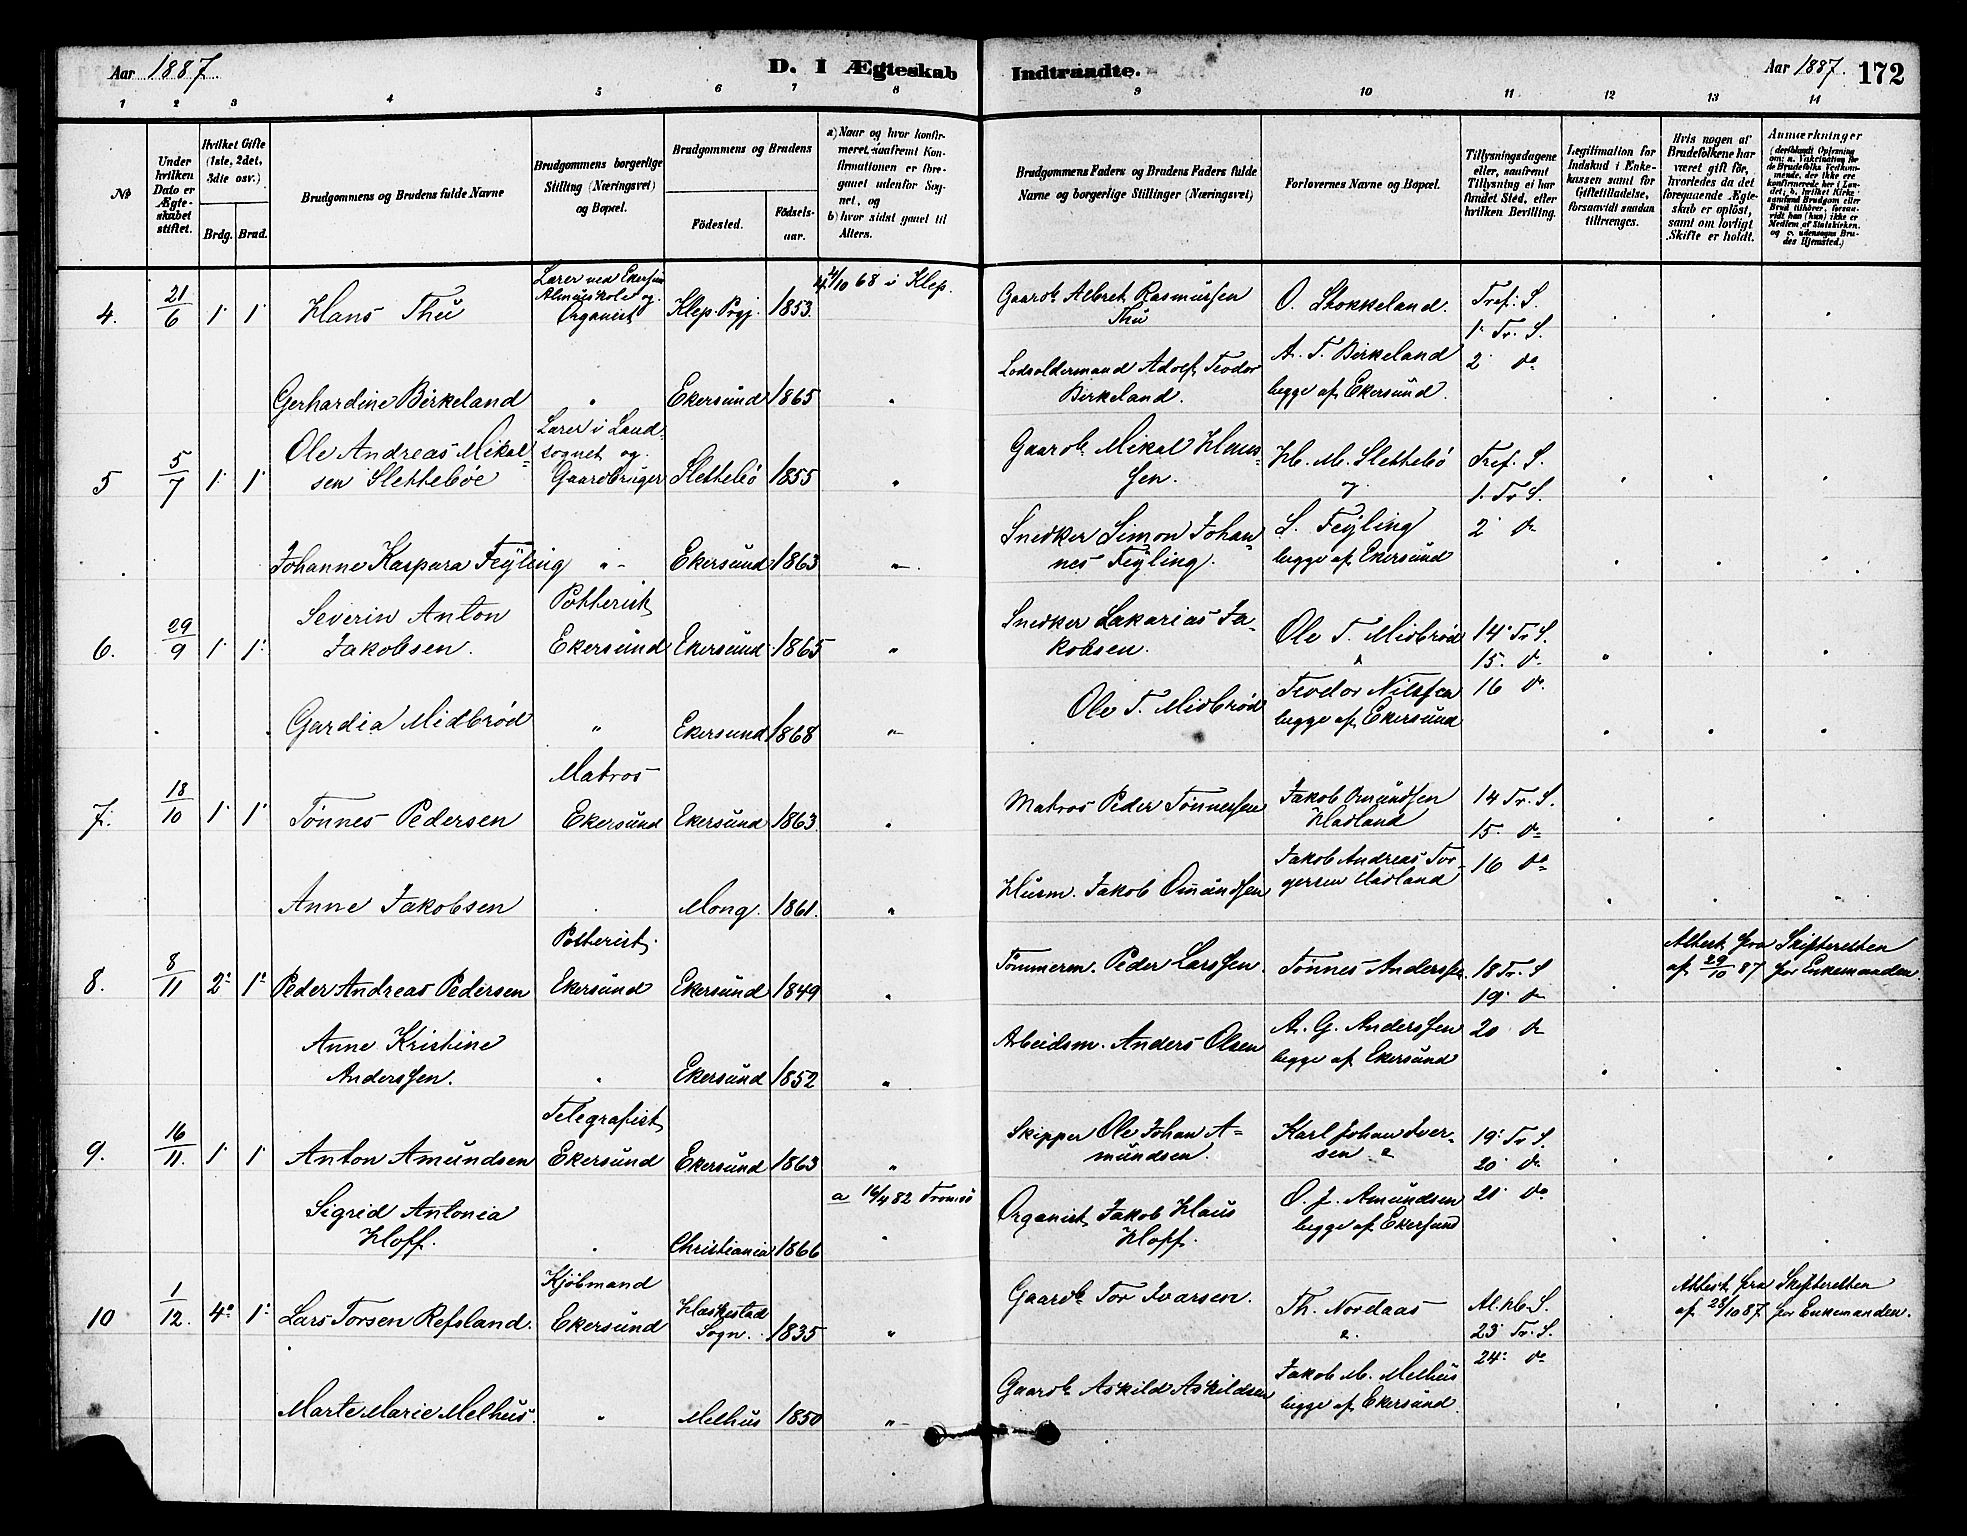 Aar 1887.
D. I Ægteskab Indtraadte.
Aar 1887. 172
1 2 3 4 5 6 7 8 9 10 11 12 13 14
No
Under hvilken Dato er Ægteskabet stiftet.
Hvilket Gifte (1ste, 2det, 3die osv.)
Brdg. Brud.
Brudgommens og Brudens fulde Navne
Brudgommens borgerlige Stilling (Næringsvei) og Bopæl.
Brudgommens og Brudens
Födested. Födselsaar.
a) Naar og hvor konfirmeret, saafremt Konfirmationen er foregaaet udenfor Sognet, og
b) hvor sidst gaaet til Alters.
Brudgommens Faders og Brudens Faders fulde Navne og borgerlige Stillinger (Næringsvei)
Forlovernes Navne og Bopæl.
Tillysningsdagene eller, saafremt Tillysning ei har fundet Sted, efter hvilken Bevilling.
Legitimation for Indskud i Enkekassen samt for Giftetilladelse, forsaavidt saadan tiltrænges.
Hvis nogen af Brudefolkene har været gift för, hvorledes da det foregaaende Ægteskab er oplöst, samt om lovligt Skifte er holdt.
Anmærkninger (deriblandt Oplysning om: a. Vakcination for de Brudefolks Vedkommende, der ikke ere konfirmerede her i Landet, b. hvilket Kirkesamfund Brudgom eller Brud tilhörer, forsaavidt han (hun) ikke er Medlem af Statskirken. og c. udensogns Brudes Hjemsted.)
4. 21/6 1 1 Hans Thu
Lærer ved Ekersund Almueskole og Organist
Klep Prgj. 1853. 4/10 68 i Klep.
Gaardb. Albret Rasmussen Thu
O. Stokkeland.
Tref. S.
1. Tr. S.
2. do
Gerhardine Birkeland " Ekersund 1865 "
Lodsoldermand Adolf Teodor Birkeland.
A. T. Birkeland
begge af Ekersund.
5 5/7 1 1 Ole Andreas Mikalsen Slettebøe
Lærer i Landsognet og Gaardbruger
Slettebö 1855 "
Gaardb. Mikal Hanssen.
H. M. Slettebö
og
Tref. S.
1. Tr. S.
2. do
Johanne Kaspara Feyling " Ekersund 1863 "
Snedker Simon Johannes Feyling.
S. Feyling
begge af Ekersund
6. 29/9 1 1 Severin Anton Jakobsen.
Potterist Ekersund Ekersund 1865 "
Snedker Zakarias Jakobsen.
Ole T. Midbrød
14. Tr. S.
15. do
16 do
Gardia Midbrød " Ekersund 1868 "
Ole T. Midbrød
Teodor Nilssen
begge af Ekersund
7. 18/10 1 1 Tønnes Pedersen
Matros Ekersund Ekersund 1863 "
Matros Peder Tønnessen
Jakob Omundsen Hadland
14 Tr. S.
15. do
16 do
Anne Jakobsen Mong. 1861. "
Husm. Jakob Omundsen
Jakob Andreas Torgersen Hadland
8. 8/11 2. 1. Peder Andreas Pedersen
Potterist. Ekersund Ekersund 1849 "
Tømmerm. Peder Larssen.
Tønnes Anderssen.
18 Tr. S
19. do
20 do
Attest fra Skifteretten af 29/10 87 for Enkemanden.
Anne Kristine Anderssen. " Ekersund 1852 "
Arbeidsm. Anders Olsen
A. G. Anderssen
begge af Ekersund
9. 16/11. 1 1 Anton Amundsen
Telegrafist Ekersund Ekersund 1863 "
Skipper Ole Johan Amundsen.
Karl Johan Iversen
19. Tr. S.
20. do
21 do
Sigrid Antonia Hoff. " Christiania 1866
a 16/4 82 Tromsö
Organist Jakob Klaus Hoff.
O. J. Amundsen
begge af Ekersund
10 1/12. 4. 1. Lars Torsen Refsland.
Kjöbmand Ekersund Heskestad Sogn. 1835 "
Gaardb. Tor Ivarsen.
Th. Nordaas
Al. H. S.
23. Tr. S.
24. do
Attest fra Skifteretten af 28/10 87 for Enkemanden.
Marte Marie Melhus. " Melhus 1850 "
Gaardb. Askild Askildsen
Jakob M. Melhus
begge af Ekersund.